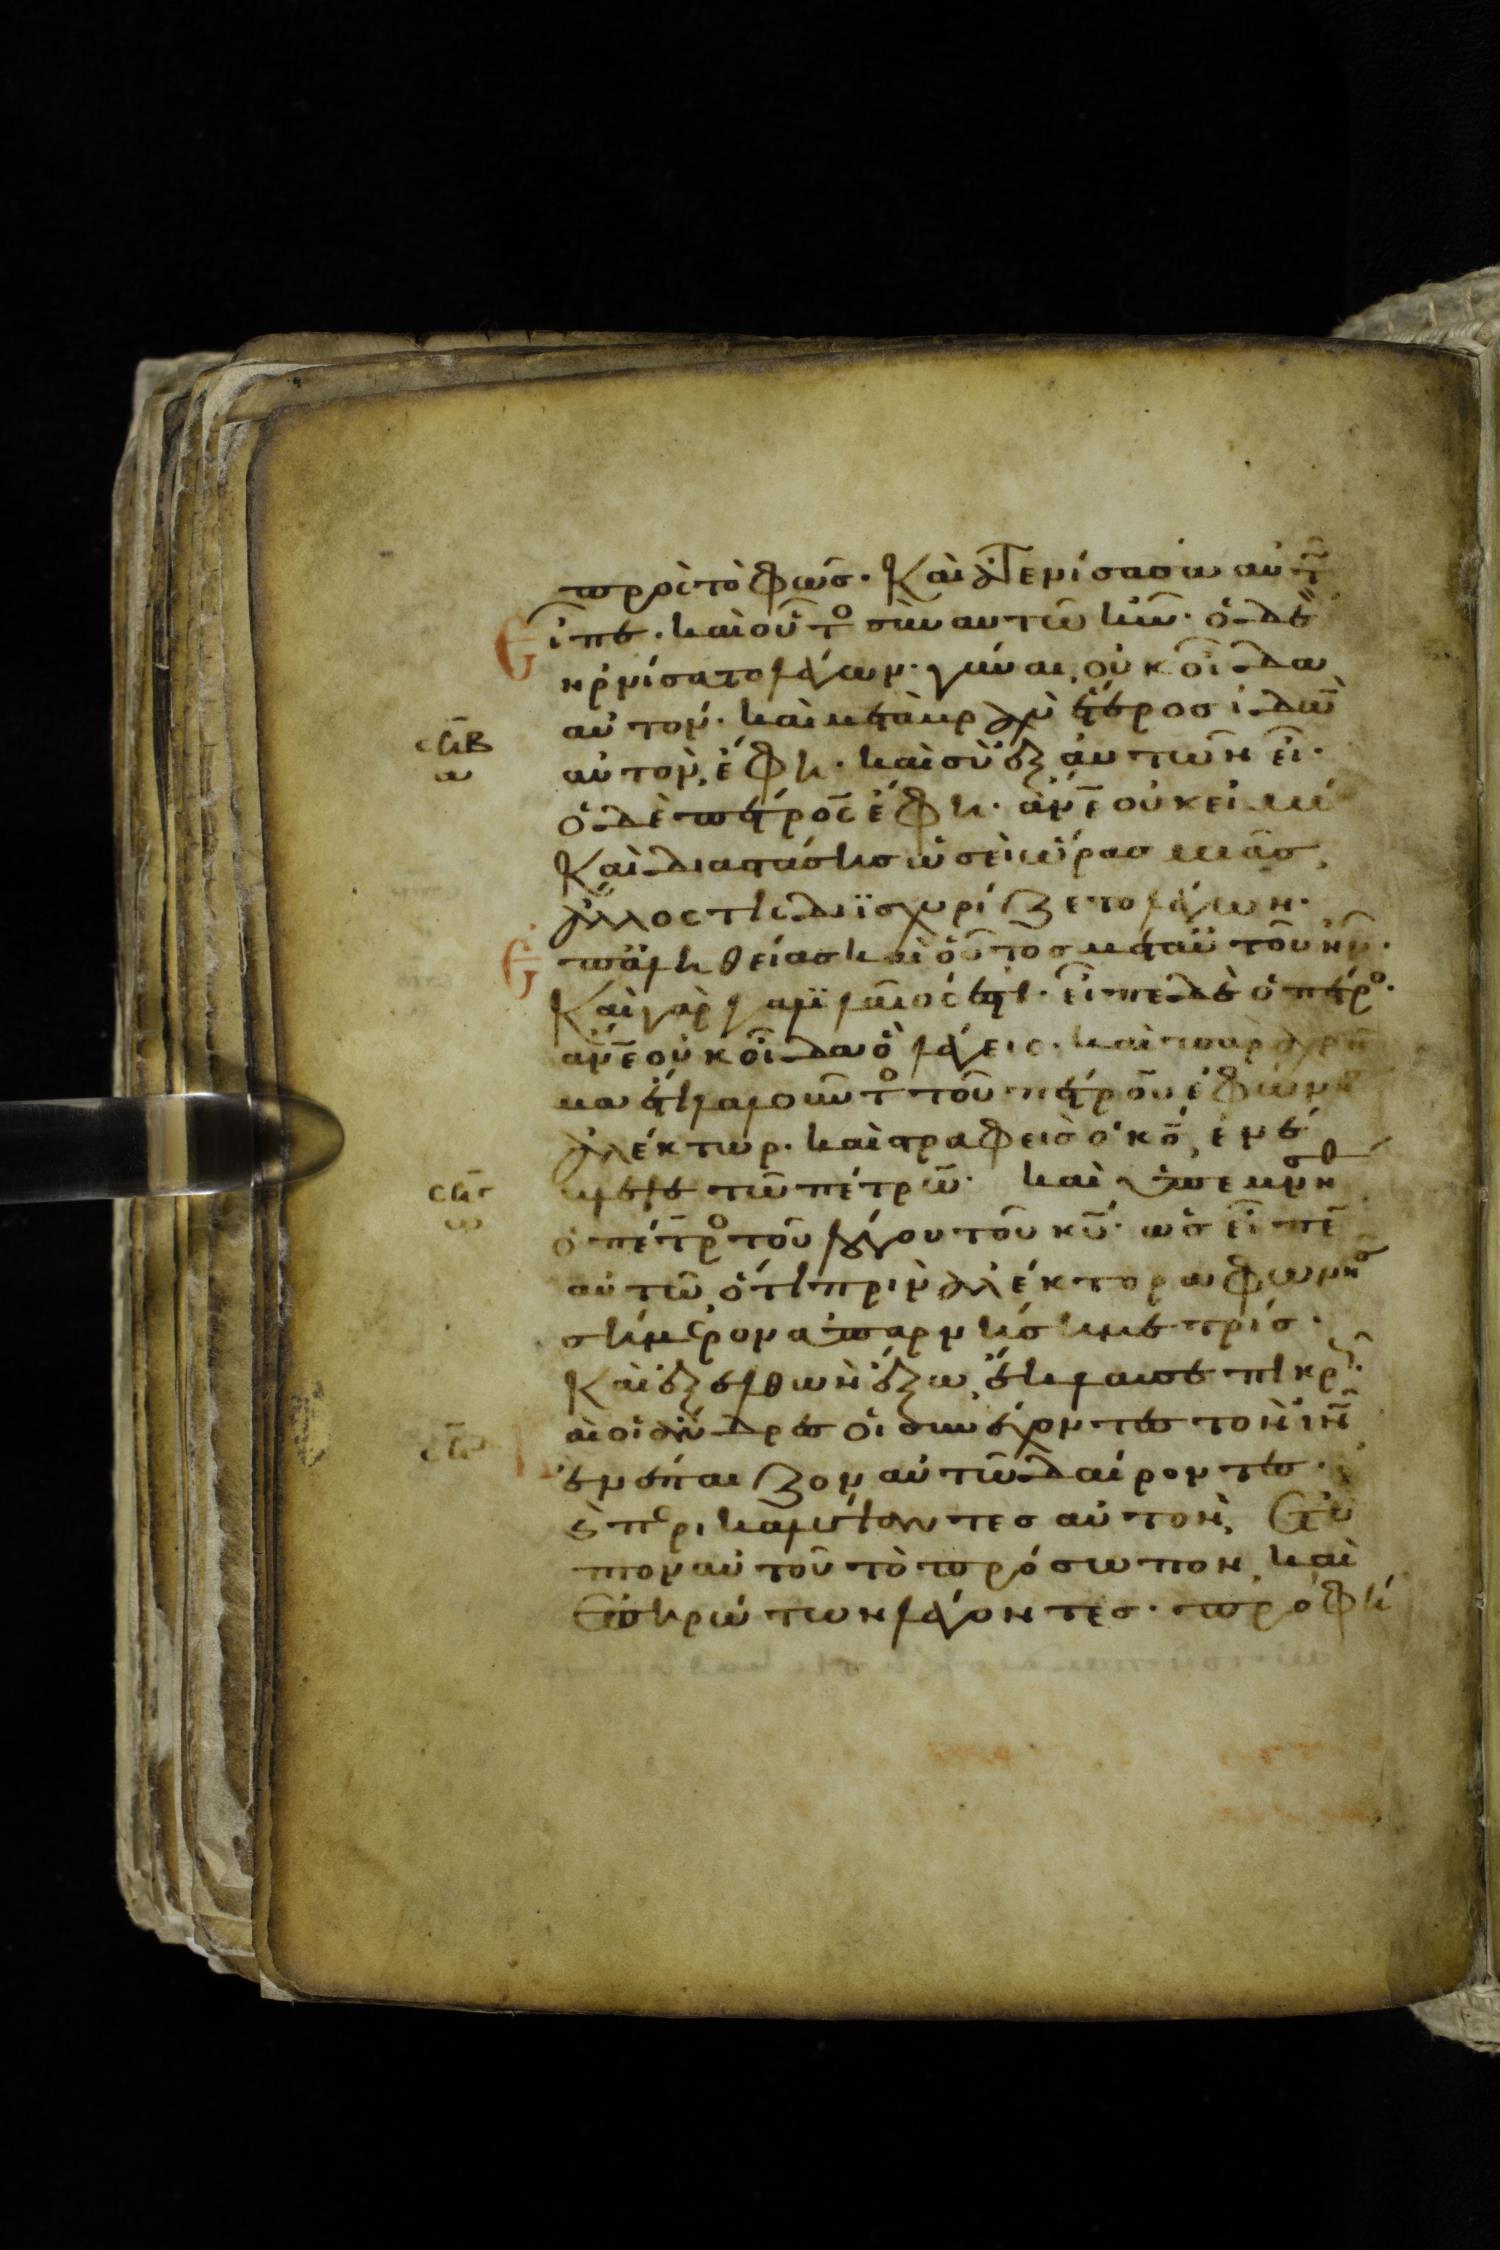 πρὸς τὸ φῶσ· Καὶ ἀτενίσασα αὐτῶ
Εἶπε· καὶ οὗτο σὺν αυτῶ ἦν· ὁ δὲ
ηρνίσατο λέγων· γύναι, οὐκ οἶδα
αὐτον· καὶ μετὰ βραχὺ ἕτεροσ ἰδὼν
αὐτὸν, ἔφη· καὶ σὺ ἐξ αυτῶν εἶ·
ὁ δὲ πέτροσ ἔφη· ἄνε οὐκ εἰμί
Καὶ διαστάσησ ὡσεὶ ὥρασ μιᾶσ,
ἄλλος τίς διϊσχυρίζετο λέγων·
Επ ἀληθείασ καὶ οὗτοσ μετ αὐτοῦ ἦν·
Καὶ γὰρ γαλιλαῖος ἐστι· εἶπε δὲ ὁ πέτρο·
ἄνε οὐκ οἶδα ὃ λέγεις· καὶ παραχρῆ
μα ἔτι λαλοῦντο τοῦ πέτρου ἐφώνη
ἀλέκτωρ· καὶ στραφεὶσ ὁ κσ, ἐνέ
βλεψε τῶ πέτρω· καὶ ὑπεμνήσθη
ὁ πέτρο τοῦ λόγου τοῦ κυ· ὡσ εἶπε
αὐτῶ, ὅτι πρὶν ἀλέκτορα φωνησ
σήμερον ἀπαρνήση με τρίσ·
Καὶ ἐξελθὼν ἔξω, ἔκλαυσε πικρ
αὶ οἱ ἄνδρεσ οἱ συνέχοντεσ τὸν ἰν
ἐνέπαιζον αὐτῶ δαίροντεσ·
ὲ περικαλύψαντεσ αὐτὸν, ἔτυ
πτον αὐτοῦ τὸ πρόσωπον, καὶ
ἐπηρώτων λέγοντεσ· προφή
σξβ
α